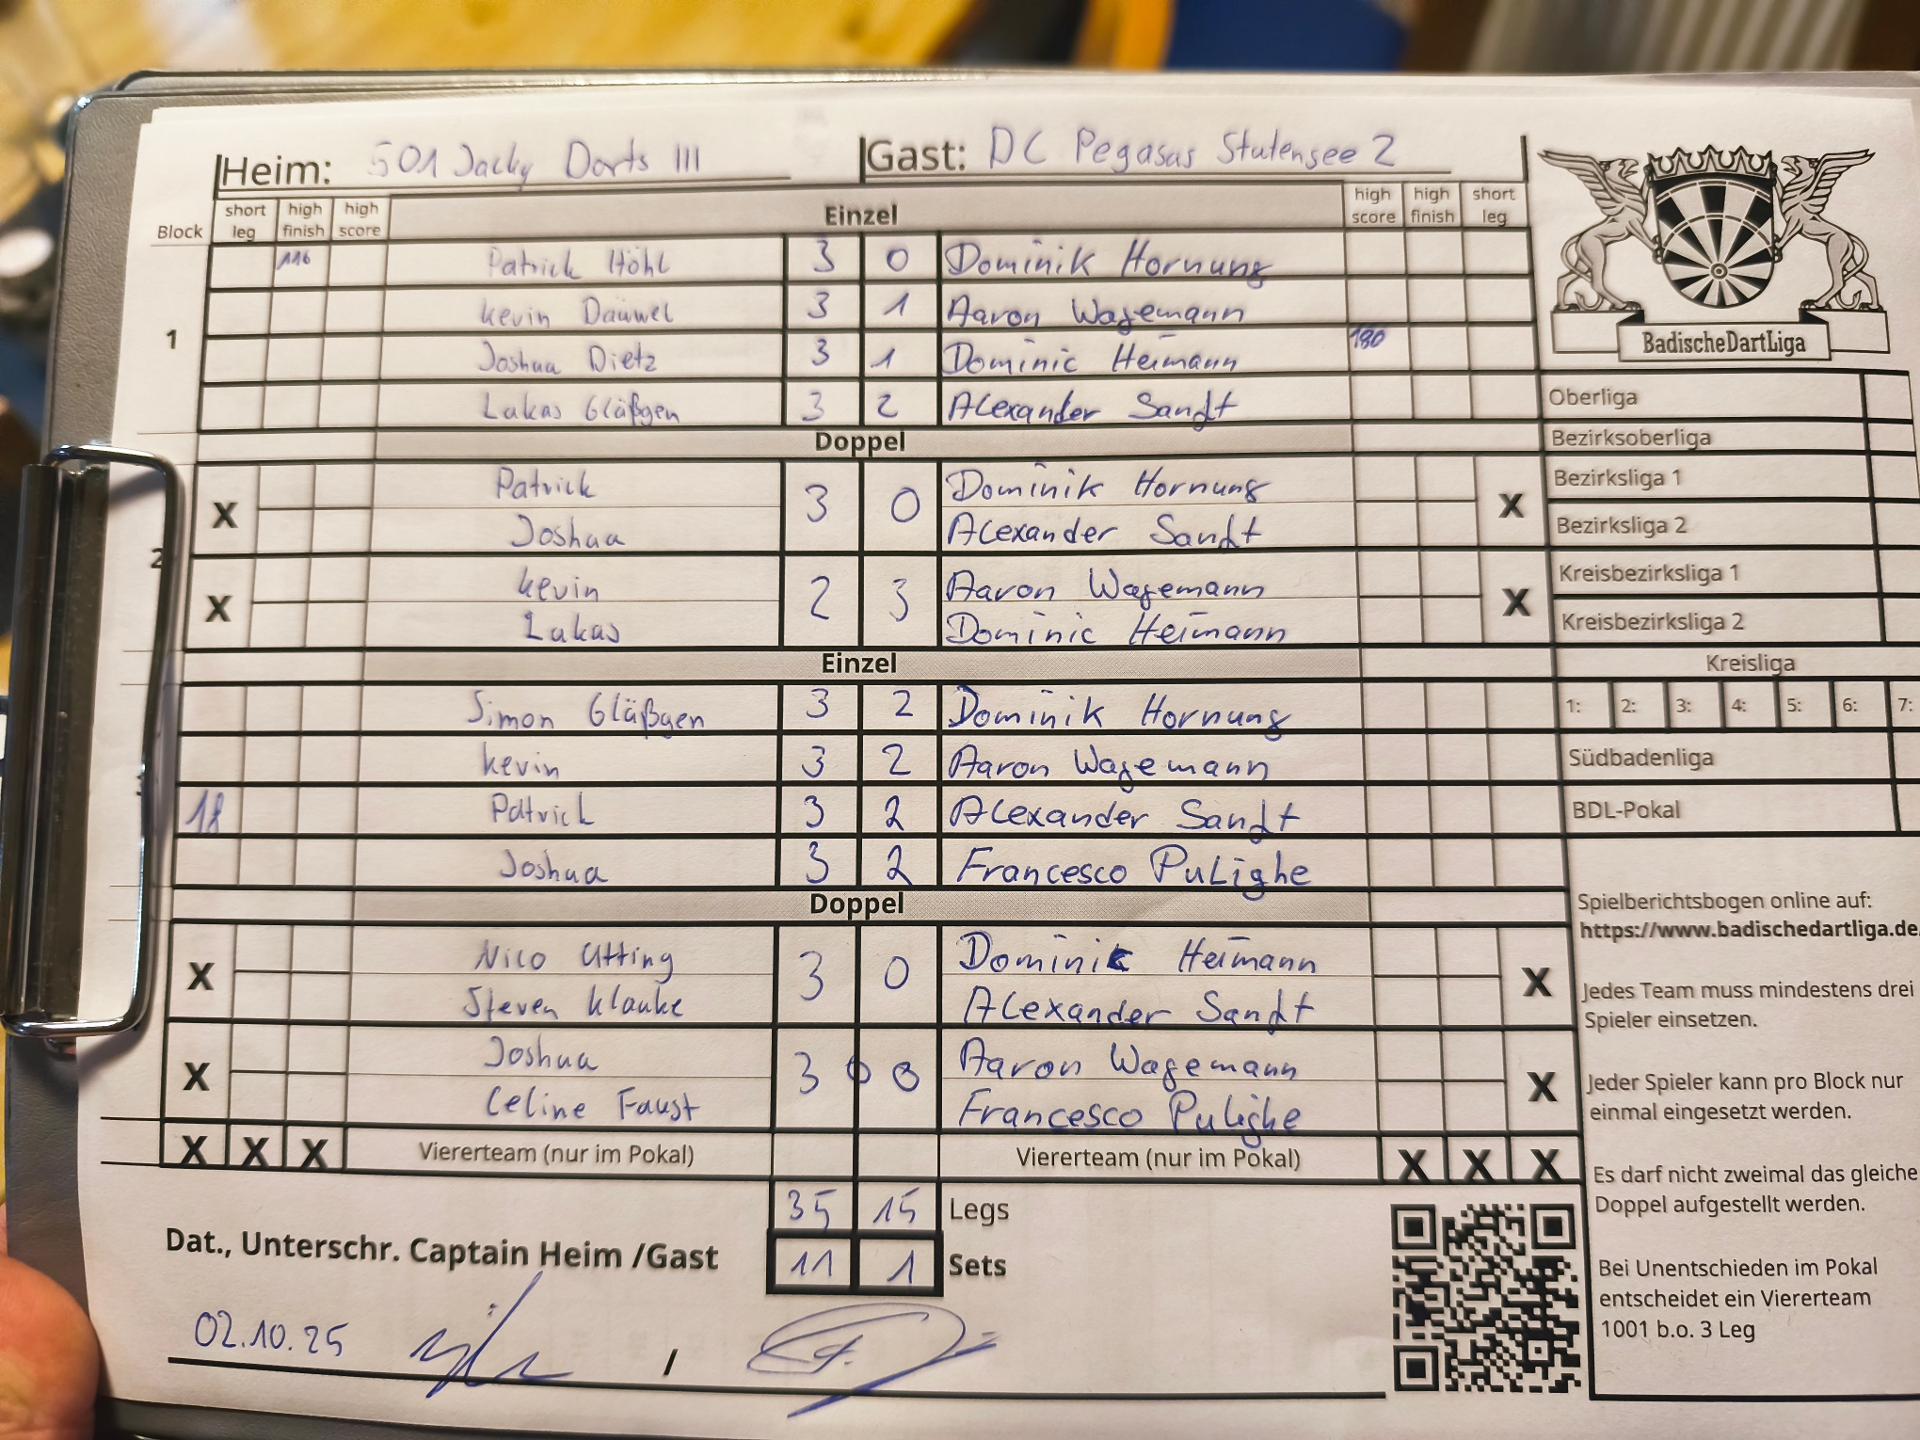 Heim: 501 Jacky Darts III Gast: DC Pegasus Stutensee 2
Block short leg high finish high score Einzel high score high finish short leg
116 Patrick Höhl 3 0 Dominik Hornung
Kevin Dauwel 3 1 Aaron Wagemann
1
Joshua Dietz 3 1 Dominic Heimann 180
Lukas Gläßgen 3 2 Alexander Sandt
Doppel
X Patrick 3 0 Dominik Hornung X
Joshua Alexander Sandt
2
X Kevin 2 3 Aaron Wagemann X
Lukas Dominic Heimann
Einzel
Simon Gläßgen 3 2 Dominik Hornung
Kevin 3 2 Aaron Wagemann
18 Patrick 3 2 Alexander Sandt
Joshua 3 2 Francesco Pulighe
Doppel
X Nico Utting 3 0 Dominic Heimann X
Steven Klauke Alexander Sandt
X Joshua 3 0 Aaron Wagemann X
Celine Faust Francesco Pulighe
X X X Viererteam (nur im Pokal) Viererteam (nur im Pokal) X X X
35 15 Legs
11 1 Sets
Dat., Unterschr. Captain Heim /Gast
02.10.25 /
BadischeDartLiga
Oberliga
Bezirksoberliga
Bezirksliga 1
Bezirksliga 2
Kreisbezirksliga 1
Kreisbezirksliga 2
Kreisliga
1: 2: 3: 4: 5: 6: 7:
Südbadenliga
BDL-Pokal
Spielberichtsbogen online auf:
https://www.badischedartliga.de
Jedes Team muss mindestens drei
Spieler einsetzen.
Jeder Spieler kann pro Block nur
einmal eingesetzt werden.
Es darf nicht zweimal das gleiche
Doppel aufgestellt werden.
Bei Unentschieden im Pokal
entscheidet ein Viererteam
1001 b.o. 3 Leg